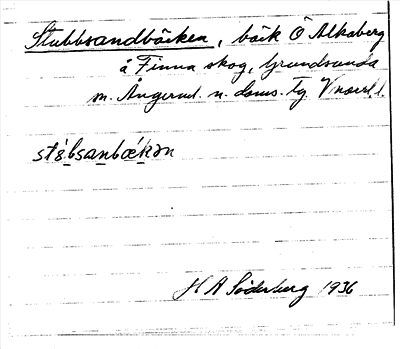 Stubbsandbäcken, bäck Ö Alkaberg
å Finna skog, Grundsunda
sn. Ångerml. n. doms. tg. Vnorrl. l.
stɞ̀bsanbækən
H A Söderberg 1936